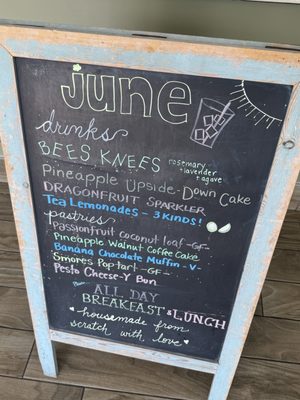 june
drinks
BEES KNEES rosemary
+ lavender
+ agave
Pineapple Upside-Down Cake
DRAGONFRUIT SPARKLER
Tea Lemonades - 3 Kinds!
pastries
Passionfruit coconut loaf -GF-
Pineapple Walnut Coffee Cake
Banana Chocolate Muffin - V -
S'mores Pop tart - GF -
Pesto Cheese-Y Bun
ALL DAY
BREAKFAST
+LUNCH
housemade from
scratch with love